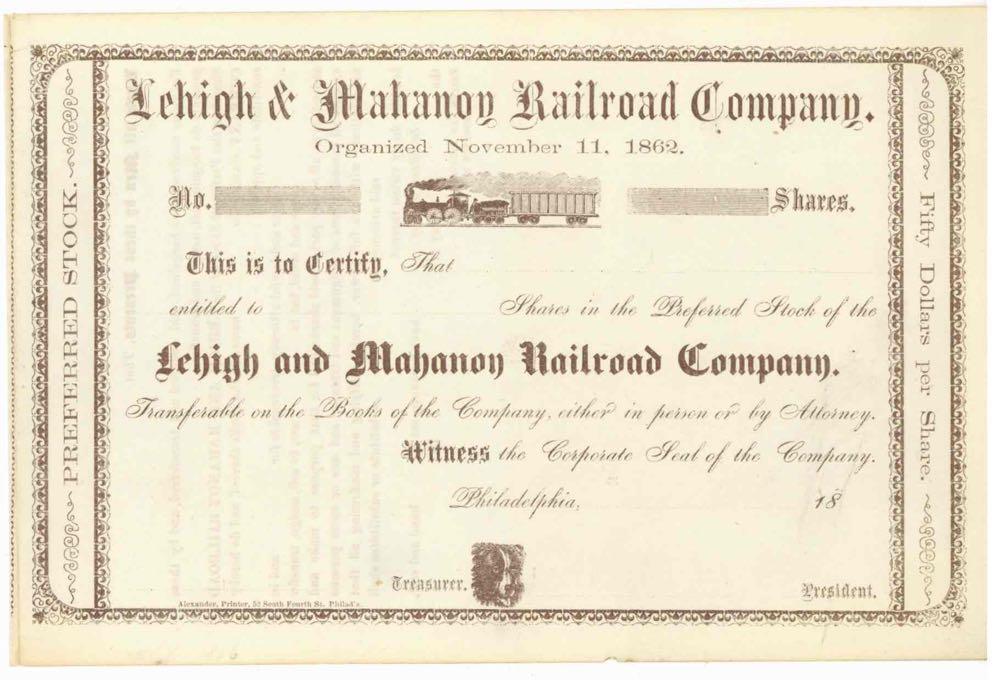 Lehigh & Mahanoy Railroad Company.
Organized November 11, 1862.
No. Shares.
This is to Certify, That
entitled to Shares in the Preferred Stock of the
Lehigh and Mahanoy Railroad Company.
Transferable on the Books of the Company, either in person or by Attorney.
Witness the Corporate Seal of the Company.
Philadelphia, 18
Treasurer. President.
Alexander, Printer, 52 South Fourth St. Philad'a.
PREFERRED STOCK.
Fifty Dollars per Share.